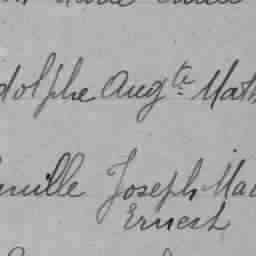 dolphe Augte Math
mille Joseph Mau
Ernest